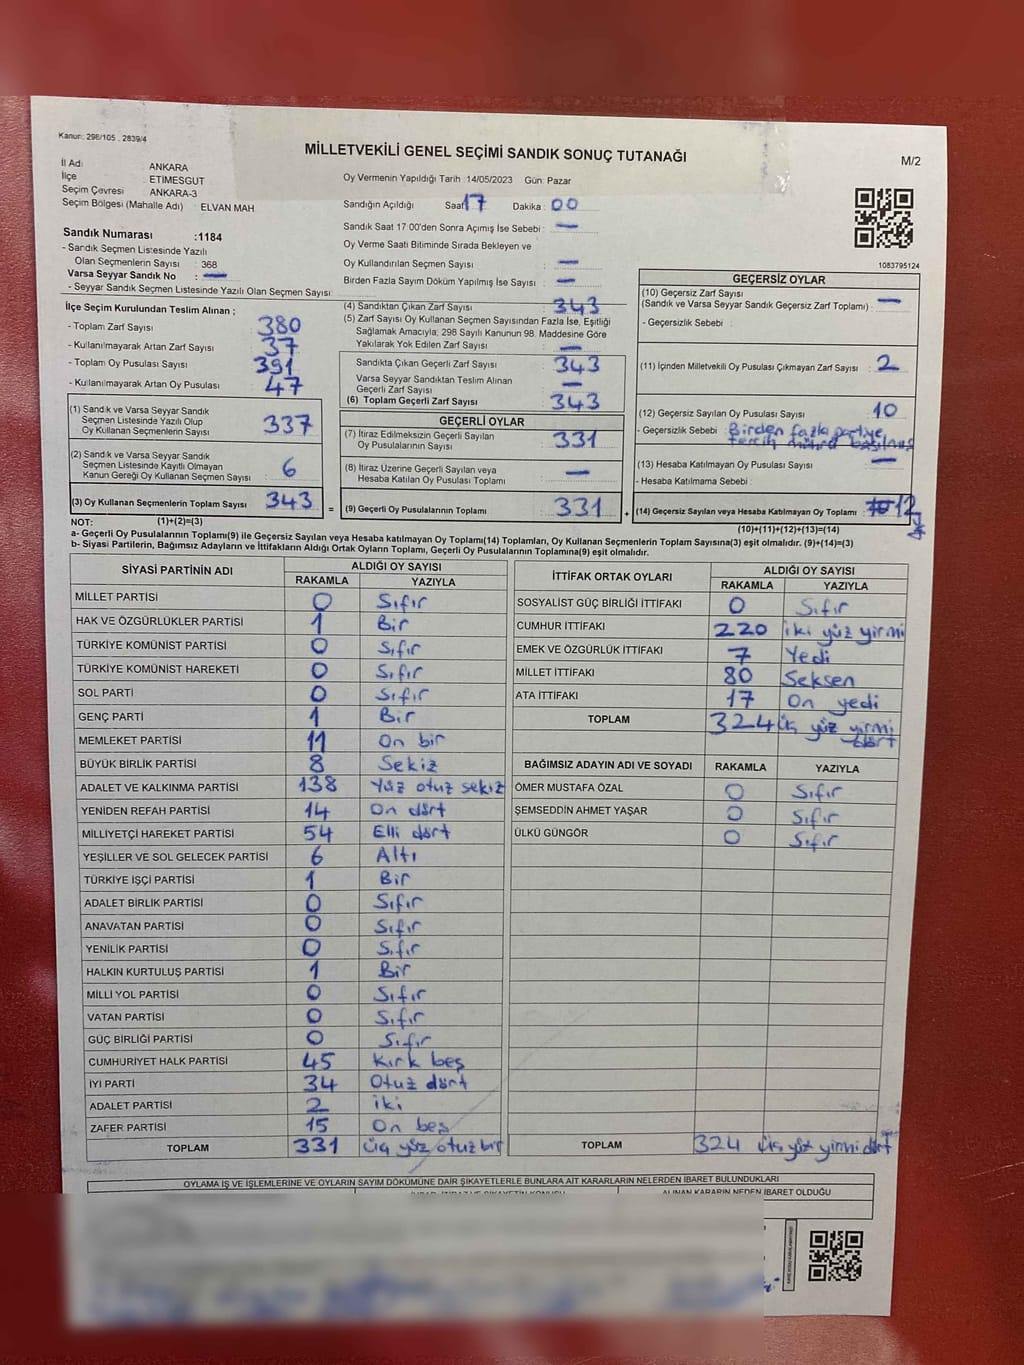 Kanun: 298/105 . 2839/4
MİLLETVEKİLİ GENEL SEÇİMİ SANDIK SONUÇ TUTANAĞI
M/2
İl Adı ANKARA
İlçe ETİMESGUT
Seçim Çevresi ANKARA-3
Seçim Bölgesi (Mahalle Adı) ELVAN MAH
Oy Vermenin Yapıldığı Tarih :14/05/2023 Gün: Pazar
Sandığın Açıldığı Saat 17 Dakika : 00
Sandık Saat 17 00'den Sonra Açımış İse Sebebi : —
Oy Verme Saati Bitiminde Sırada Bekleyen ve
Oy Kullandırılan Seçmen Sayısı : —
Birden Fazla Sayım Döküm Yapılmış İse Sayısı : —
1083795124
Sandık Numarası :1184
- Sandık Seçmen Listesinde Yazılı
Olan Seçmenlerin Sayısı : 368
Varsa Seyyar Sandık No : —
- Seyyar Sandık Seçmen Listesinde Yazılı Olan Seçmen Sayısı:
İlçe Seçim Kurulundan Teslim Alınan ;
- Toplam Zarf Sayısı 380
- Kullanılmayarak Artan Zarf Sayısı 37
- Toplam Oy Pusulası Sayısı 391
- Kullanılmayarak Artan Oy Pusulası 47
(1) Sandık ve Varsa Seyyar Sandık
Seçmen Listesinde Yazılı Olup
Oy Kullanan Seçmenlerin Sayısı 337
(2) Sandık ve Varsa Seyyar Sandık
Seçmen Listesinde Kayıtlı Olmayan
Kanun Gereği Oy Kullanan Seçmen Sayısı 6
(3) Oy Kullanan Seçmenlerin Toplam Sayısı 343 =
(4) Sandıktan Çıkan Zarf Sayısı 343
(5) Zarf Sayısı Oy Kullanan Seçmen Sayısından Fazla İse, Eşitliği
Sağlamak Amacıyla, 298 Sayılı Kanunun 98. Maddesine Göre
Yakılarak Yok Edilen Zarf Sayısı : —
Sandıkta Çıkan Geçerli Zarf Sayısı 343
Varsa Seyyar Sandıktan Teslim Alınan
Geçerli Zarf Sayısı —
(6) Toplam Geçerli Zarf Sayısı 343
GEÇERLİ OYLAR
(7) İtiraz Edilmeksizin Geçerli Sayılan
Oy Pusulasının Sayısı 331
(8) İtiraz Üzerine Geçerli Sayılan veya
Hesaba Katılan Oy Pusulası Toplamı —
(9) Geçerli Oy Pusulalarının Toplamı 331 +
GEÇERSİZ OYLAR
(10) Geçersiz Zarf Sayısı
(Sandık ve Varsa Seyyar Sandık Geçersiz Zarf Toplamı) : —
- Geçersizlik Sebebi :
(11) İçinden Milletvekili Oy Pusulası Çıkmayan Zarf Sayısı : 2
(12) Geçersiz Sayılan Oy Pusulası Sayısı : 10
- Geçersizlik Sebebi : Birden fazla partiye
tercih mührü basılmış
(13) Hesaba Katılmayan Oy Pusulası Sayısı : —
- Hesaba Katılmama Sebebi :
(14) Geçersiz Sayılan veya Hesaba Katılmayan Oy Toplamı 12
NOT: (1)+(2)=(3) (10)+(11)+(12)+(13)=(14)
a- Geçerli Oy Pusulalarının Toplamı(9) ile Geçersiz Sayılan veya Hesaba katılmayan Oy Toplamı(14) Toplamları, Oy Kullanan Seçmenlerin Toplam Sayısına(3) eşit olmalıdır. (9)+(14)=(3)
b- Siyasi Partilerin, Bağımsız Adayların ve İttifakların Aldığı Ortak Oyların Toplamı, Geçerli Oy Pusulalarının Toplamına(9) eşit olmalıdır.
SİYASİ PARTİNİN ADI ALDIĞI OY SAYISI
RAKAMLA YAZIYLA
MİLLET PARTİSİ 0 Sıfır
HAK VE ÖZGÜRLÜKLER PARTİSİ 1 Bir
TÜRKİYE KOMÜNİST PARTİSİ 0 Sıfır
TÜRKİYE KOMÜNİST HAREKETİ 0 Sıfır
SOL PARTİ 0 Sıfır
GENÇ PARTİ 1 Bir
MEMLEKET PARTİSİ 11 On bir
BÜYÜK BİRLİK PARTİSİ 8 Sekiz
ADALET VE KALKINMA PARTİSİ 138 Yüz otuz sekiz
YENİDEN REFAH PARTİSİ 14 On dört
MİLLİYETÇİ HAREKET PARTİSİ 54 Elli dört
YEŞİLLER VE SOL GELECEK PARTİSİ 6 Altı
TÜRKİYE İŞÇİ PARTİSİ 1 Bir
ADALET BİRLİK PARTİSİ 0 Sıfır
ANAVATAN PARTİSİ 0 Sıfır
YENİLİK PARTİSİ 0 Sıfır
HALKIN KURTULUŞ PARTİSİ 1 Bir
MİLLİ YOL PARTİSİ 0 Sıfır
VATAN PARTİSİ 0 Sıfır
GÜÇ BİRLİĞİ PARTİSİ 0 Sıfır
CUMHURİYET HALK PARTİSİ 45 Kırk beş
İYİ PARTİ 34 Otuz dört
ADALET PARTİSİ 2 iki
ZAFER PARTİSİ 15 On beş
TOPLAM 331 üç yüz otuz bir
İTTİFAK ORTAK OYLARI ALDIĞI OY SAYISI
RAKAMLA YAZIYLA
SOSYALİST GÜÇ BİRLİĞİ İTTİFAKI 0 Sıfır
CUMHUR İTTİFAKI 220 iki yüz yirmi
EMEK VE ÖZGÜRLÜK İTTİFAKI 7 Yedi
MİLLET İTTİFAKI 80 Seksen
ATA İTTİFAKI 17 On yedi
TOPLAM 324 üç yüz yirmi
dört
BAĞIMSIZ ADAYIN ADI VE SOYADI RAKAMLA YAZIYLA
ÖMER MUSTAFA ÖZAL 0 Sıfır
ŞEMSEDDİN AHMET YAŞAR 0 Sıfır
ÜLKÜ GÜNGÖR 0 Sıfır
TOPLAM 324 üç yüz yirmi dört
OYLAMA İŞ VE İŞLEMLERİNE VE OYLARIN SAYIM DÖKÜMÜNE DAİR ŞİKAYETLERLE BUNLARA AİT KARARLARIN NELERDEN İBARET BULUNDUKLARI
ALINAN KARARIN NEDEN İBARET OLDUĞU